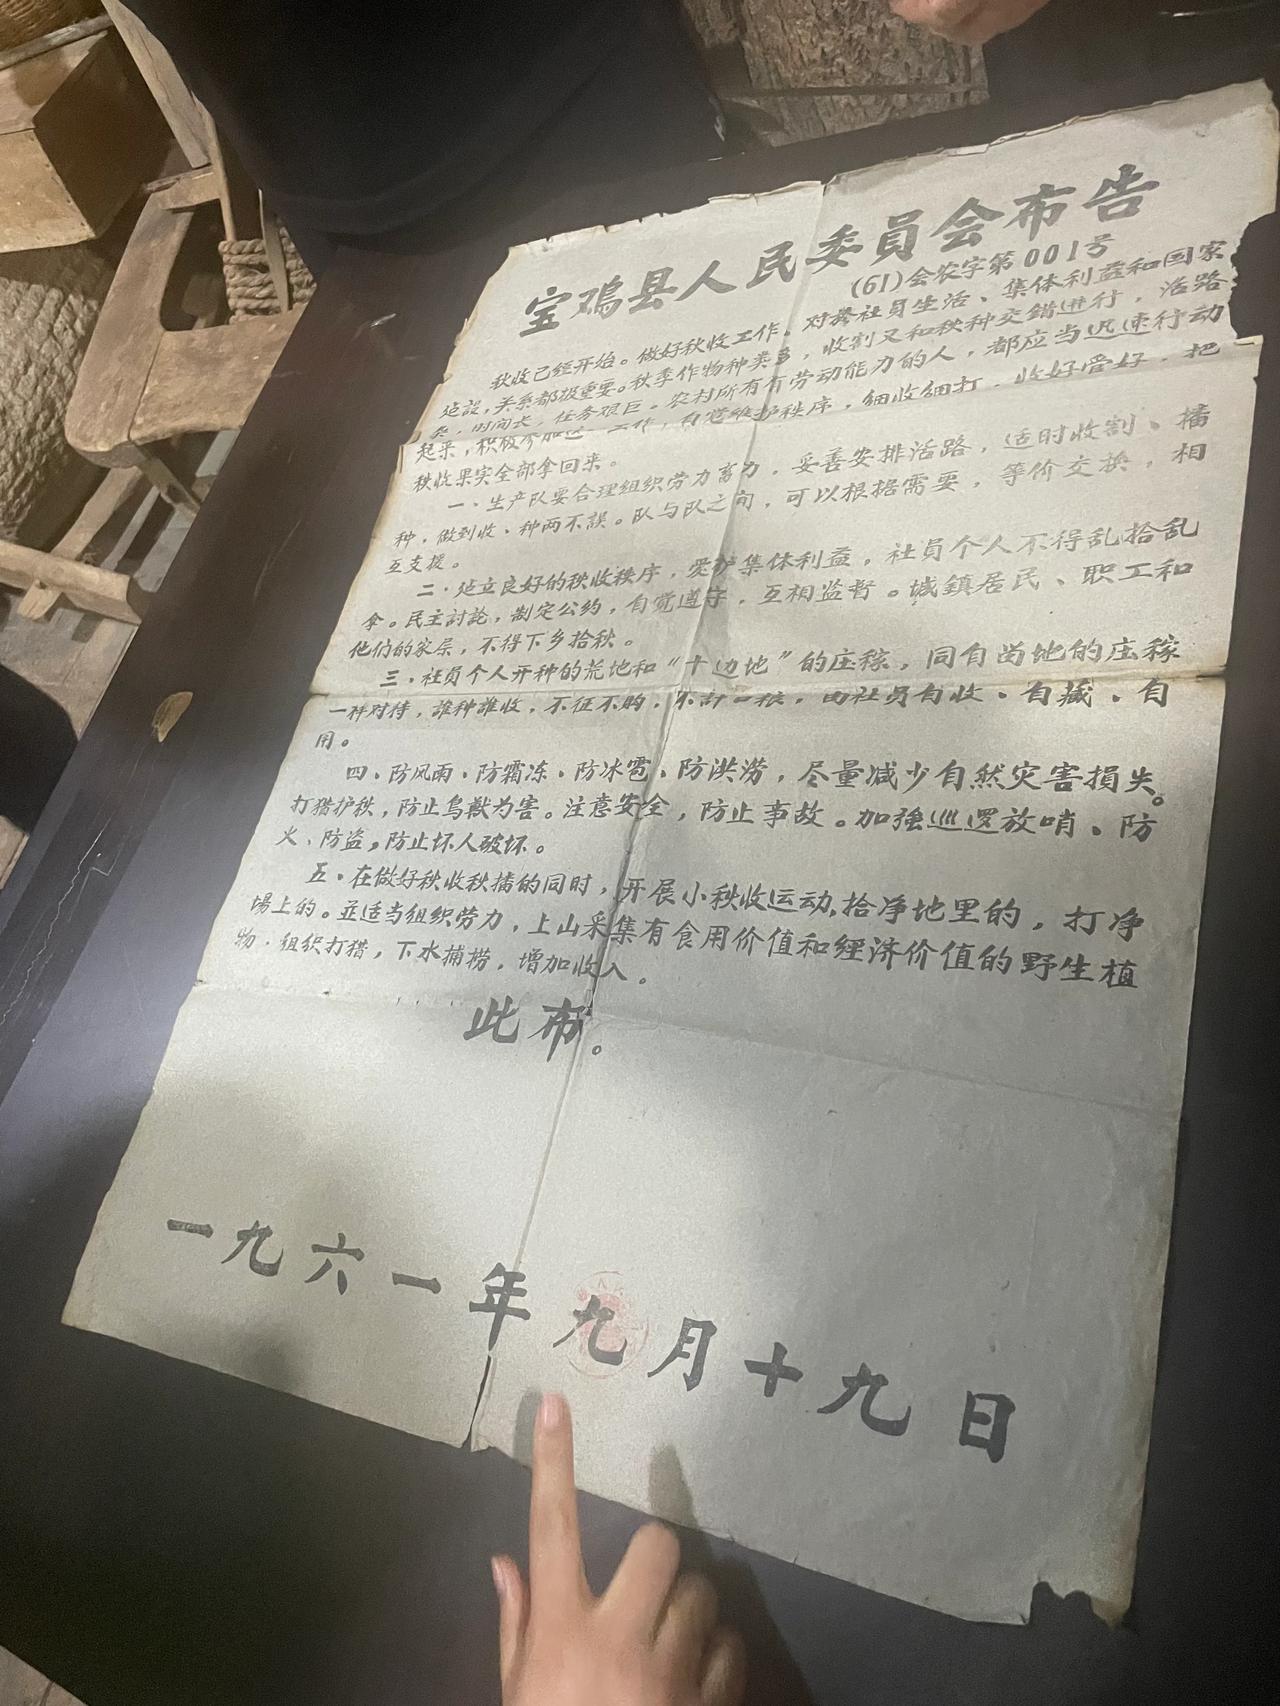 宝鸡县人民委員会布告
(61)会农字第001号
秋收已經开始。做好秋收工作，对於社員生活、集体利益和国家
建設，关系都很重要。秋季作物种类多，收割又和秋种交錯进行，活路
杂，时间长，任务艰巨。农村所有有劳动能力的人，都应当迅速行动
起来，积极参加这一工作，自觉维护秩序，細收細打，收好管好，把
秋收果实全部拿回来。
一、生产队要合理組织劳力畜力，妥善安排活路，适时收割、播
种，做到收、种两不誤。队与队之间，可以根据需要，等价交换，相
互支援。
二、建立良好的秋收秩序，爱护集体利益。社員个人不得乱拾乱
拿。民主討論，制定公約，自觉遵守，互相监督。城鎮居民、职工和
他们的家属，不得下乡拾秋。
三、社員个人开种的荒地和“十边地”的庄稼，同自留地的庄稼
一样对待，誰种誰收，不征不购，不計口粮，由社員自收、自藏、自
用。
四、防风雨、防霜冻、防冰雹、防洪涝，尽量减少自然灾害損失。
打猎护秋，防止鳥獣为害。注意安全，防止事故。加強巡逻放哨、防
火、防盗，防止坏人破坏。
五、在做好秋收秋播的同时，开展小秋收运动，拾净地里的，打净
場上的。並适当組织劳力，上山采集有食用价值和經济价值的野生植
物，組织打猎，下水捕捞，增加收入。
此布。
一九六一年九月十九日